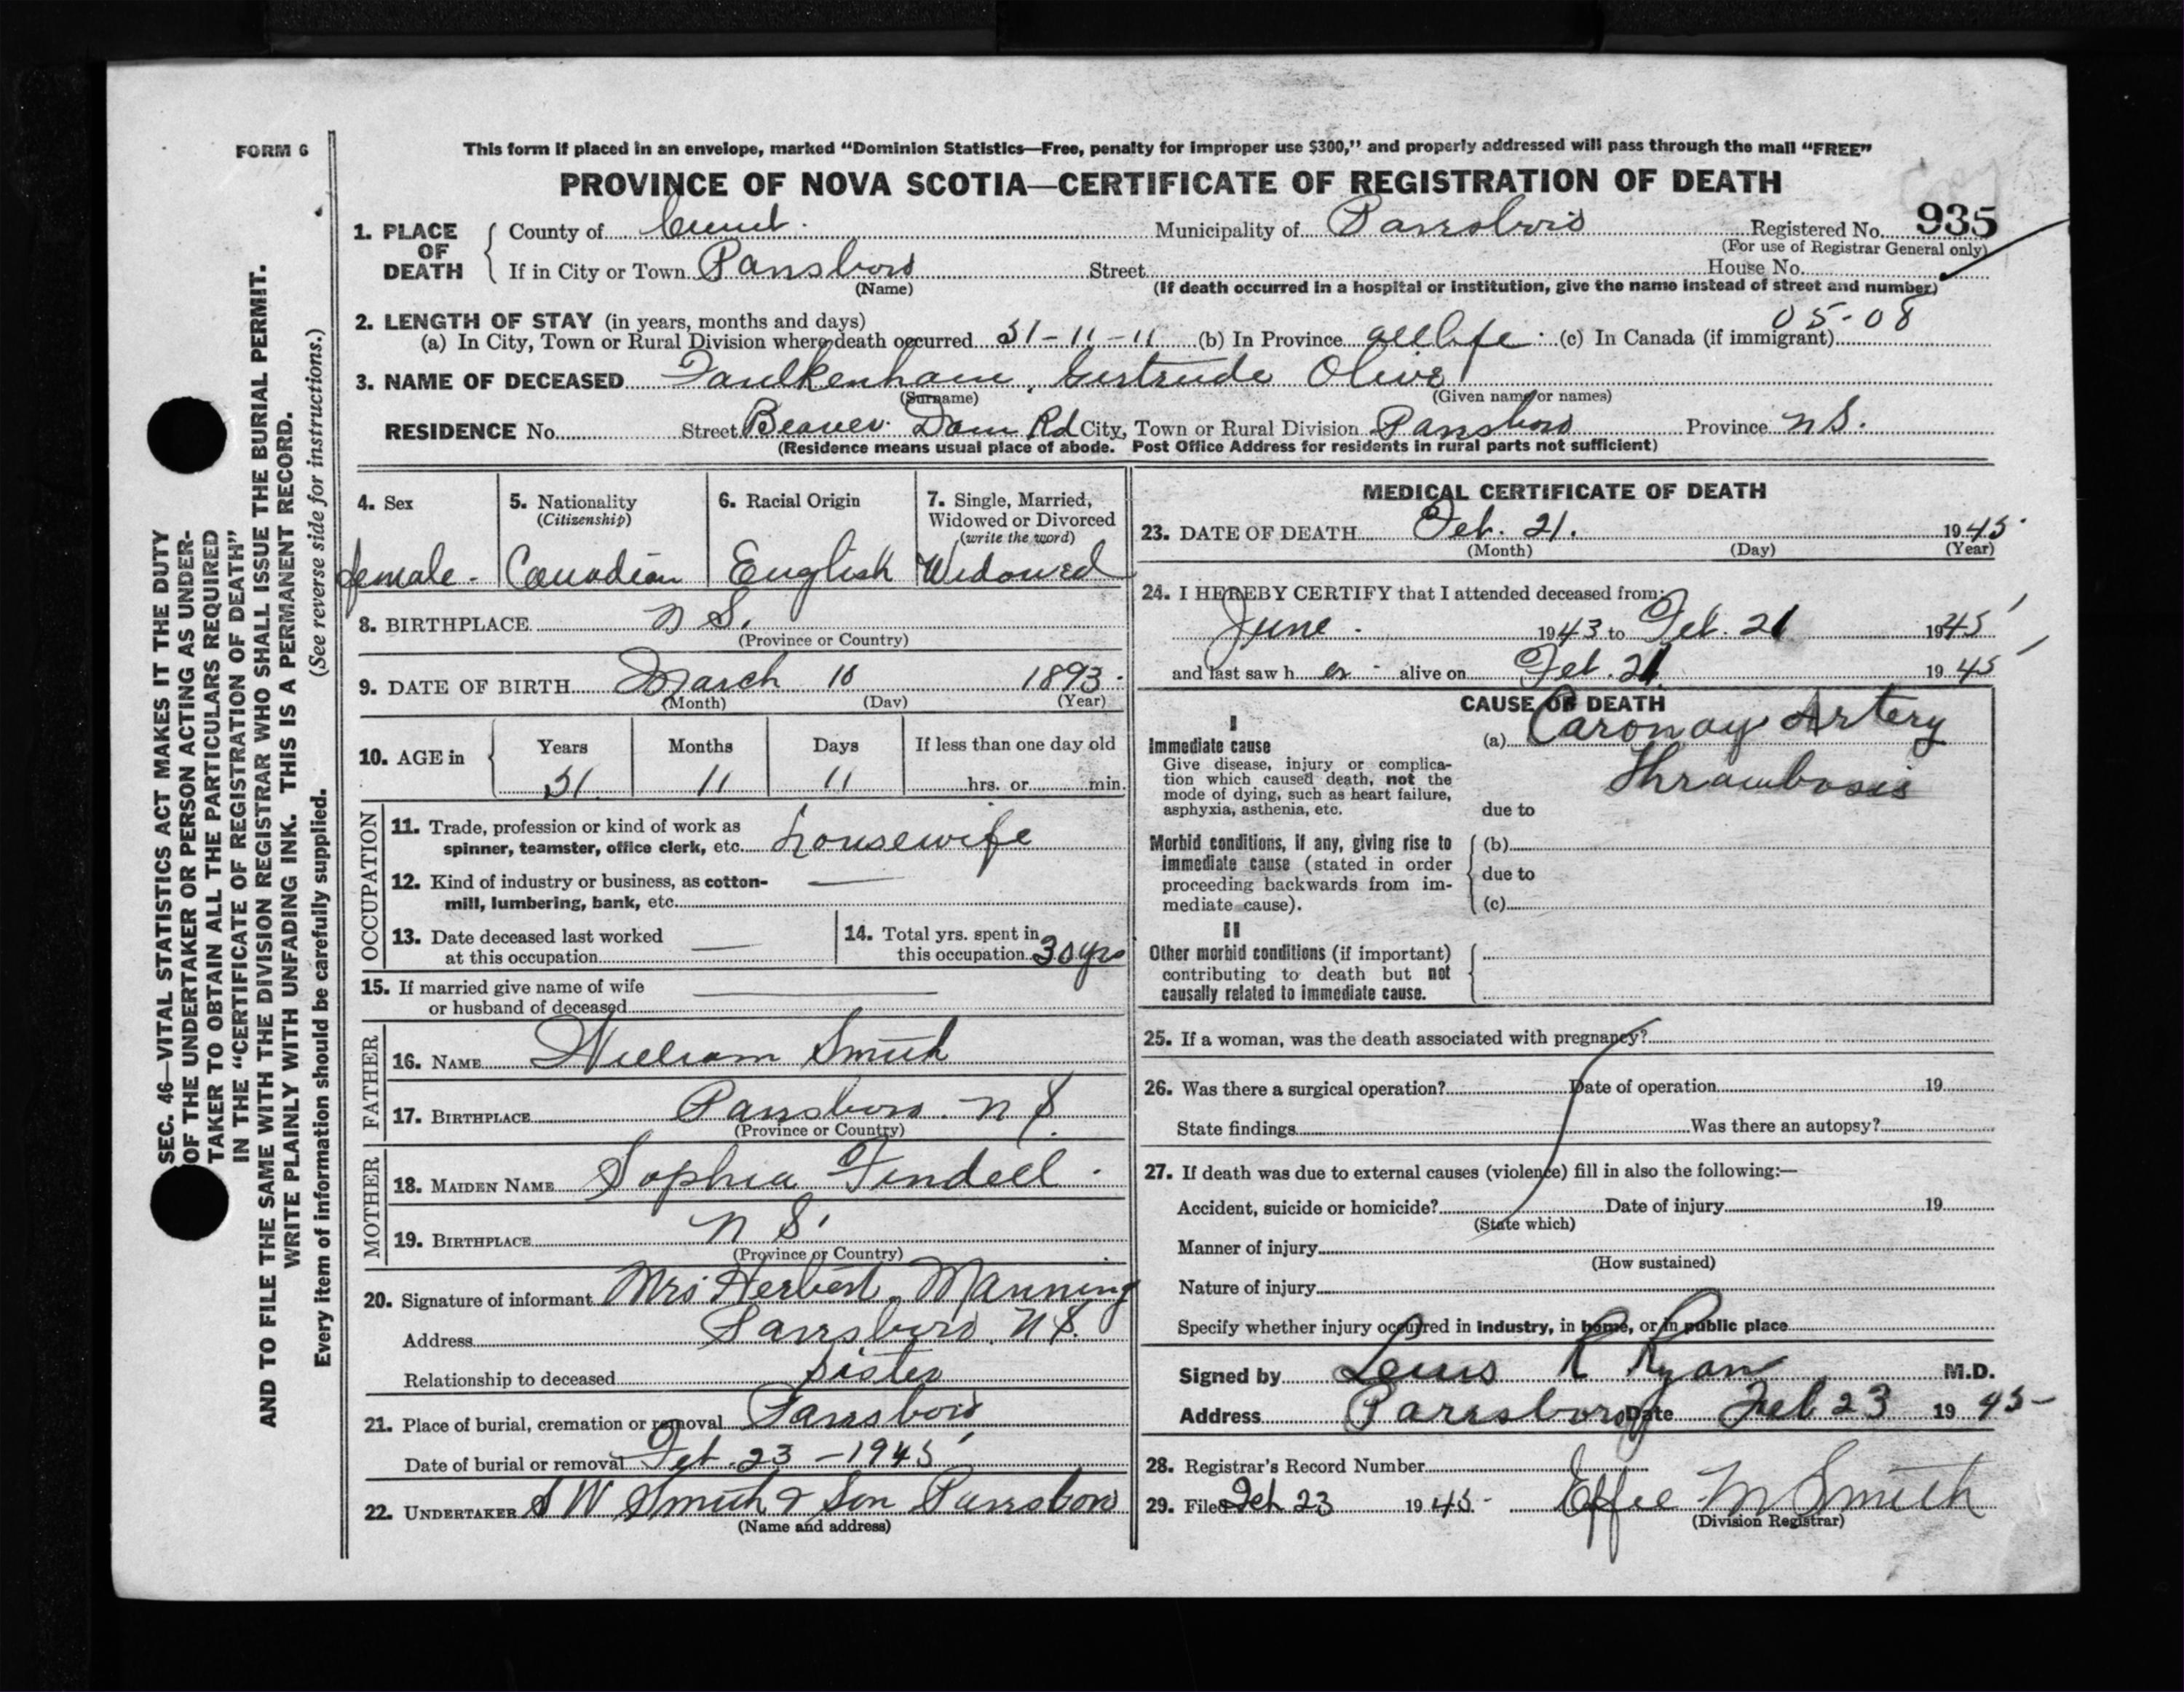 FORM 6
This form if placed in an envelope, marked “Dominion Statistics—Free, penalty for improper use $300,” and properly addressed will pass through the mail “FREE”
PROVINCE OF NOVA SCOTIA—CERTIFICATE OF REGISTRATION OF DEATH
1. PLACE OF DEATH
County of Cumb. Municipality of Parrsboro Registered No. 935
(For use of Registrar General only)
If in City or Town Parrsboro Street House No.
(Name) (If death occurred in a hospital or institution, give the name instead of street and number)
05-08
2. LENGTH OF STAY (in years, months and days)
(a) In City, Town or Rural Division where death occurred 51-11-11 (b) In Province all life (c) In Canada (if immigrant)
3. NAME OF DECEASED Faulkenham, Gertrude Olive
(Surname) (Given name or names)
RESIDENCE No. Street Beaver Dam Rd City, Town or Rural Division Parrsboro Province NS.
(Residence means usual place of abode. Post Office Address for residents in rural parts not sufficient)
4. Sex
female
5. Nationality
(Citizenship)
Canadian
6. Racial Origin
English
7. Single, Married,
Widowed or Divorced
(write the word)
Widowed
8. BIRTHPLACE N S.
(Province or Country)
9. DATE OF BIRTH March 10 1893
(Month) (Day) (Year)
10. AGE in
Years Months Days If less than one day old
51 11 11 hrs. or min.
OCCUPATION
11. Trade, profession or kind of work as
spinner, teamster, office clerk, etc. housewife
12. Kind of industry or business, as cotton-
mill, lumbering, bank, etc. —
13. Date deceased last worked
at this occupation —
14. Total yrs. spent in
this occupation 30 yrs
15. If married give name of wife
or husband of deceased —
FATHER
16. NAME William Smith
17. BIRTHPLACE Parrsboro. N S
(Province or Country)
MOTHER
18. MAIDEN NAME Sophia
19. BIRTHPLACE N S.
(Province or Country)
20. Signature of informant Mrs Herbert Manning
Address Parrsboro. N S.
Relationship to deceased Sister
21. Place of burial, cremation or removal Parrsboro
Date of burial or removal Feb. 23 - 1945
22. UNDERTAKER S W Smith & Son Parrsboro
(Name and address)
MEDICAL CERTIFICATE OF DEATH
23. DATE OF DEATH Feb. 21. 1945
(Month) (Day) (Year)
24. I HEREBY CERTIFY that I attended deceased from:
June 1943 to Feb. 21 1945
and last saw h er alive on Feb. 21. 1945
CAUSE OF DEATH
I
Immediate cause
Give disease, injury or complica-
tion which caused death, not the
mode of dying, such as heart failure,
asphyxia, asthenia, etc.
(a) Caronay Artery
Thrambosis
due to
Morbid conditions, if any, giving rise to
immediate cause (stated in order
proceeding backwards from im-
mediate cause).
(b)
due to
(c)
II
Other morbid conditions (if important)
contributing to death but not
causally related to immediate cause.
25. If a woman, was the death associated with pregnancy?
26. Was there a surgical operation? Date of operation 19
State findings Was there an autopsy?
27. If death was due to external causes (violence) fill in also the following:—
Accident, suicide or homicide? Date of injury 19
(State which)
Manner of injury
(How sustained)
Nature of injury
Specify whether injury occurred in industry, in home, or in public place
Signed by Lewis R Ryan M.D.
Address Parrsboro Date Feb 23 1945
28. Registrar's Record Number
29. Filed Feb 23 1945 Effie M Smith
(Division Registrar)
SEC. 46—VITAL STATISTICS ACT MAKES IT THE DUTY
OF THE UNDERTAKER OR PERSON ACTING AS UNDER-
TAKER TO OBTAIN ALL THE PARTICULARS REQUIRED
IN THE “CERTIFICATE OF REGISTRATION OF DEATH”
AND TO FILE THE SAME WITH THE DIVISION REGISTRAR WHO SHALL ISSUE THE BURIAL PERMIT.
WRITE PLAINLY WITH UNFADING INK. THIS IS A PERMANENT RECORD.
Every item of information should be carefully supplied. (See reverse side for instructions.)